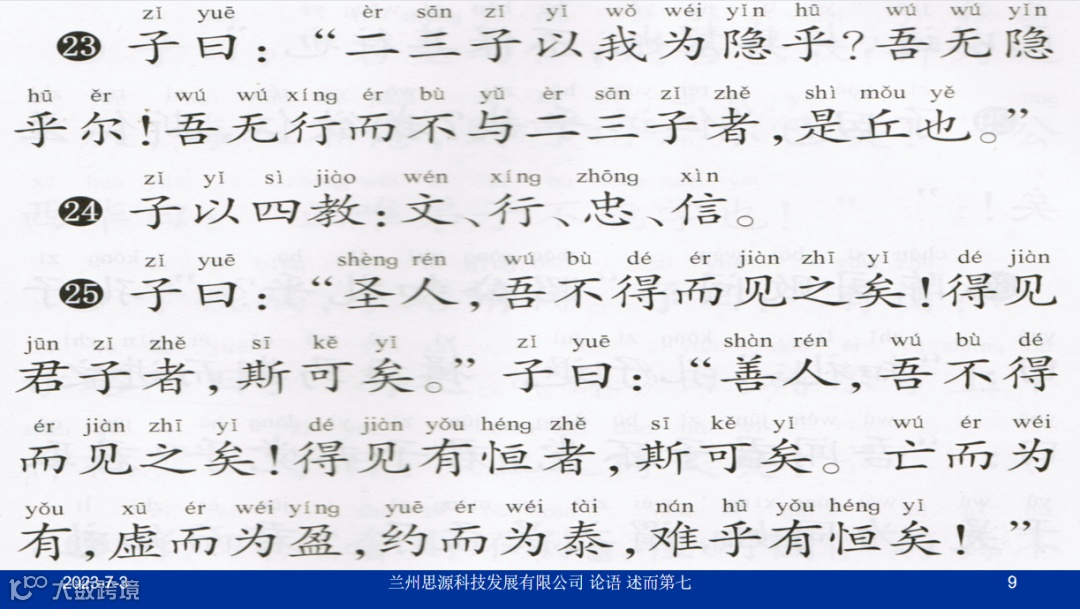 zǐ yuē èr sān zǐ yǐ wǒ wéi yǐn hū wú wú yǐn
23 子曰：“二三子以我为隐乎？吾无隐
hū ěr wú wú xíng ér bù yǔ èr sān zǐ zhě shì mǒu yě
乎尔！吾无行而不与二三子者，是丘也。”
zǐ yǐ sì jiào wén xíng zhōng xìn
24 子以四教：文、行、忠、信。
zǐ yuē shèng rén wú bù dé ér jiàn zhī yǐ dé jiàn
25 子曰：“圣人，吾不得而见之矣！得见
jūn zǐ zhě sī kě yǐ zǐ yuē shàn rén wú bù dé
君子者，斯可矣。”子曰：“善人，吾不得
ér jiàn zhī yǐ dé jiàn yǒu héng zhě sī kě yǐ wú ér wéi
而见之矣！得见有恒者，斯可矣。亡而为
yǒu xū ér wéi yíng yuē ér wéi tài nán hū yǒu héng yǐ
有，虚而为盈，约而为泰，难乎有恒矣！”
2023-7-3 兰州思源科技发展有限公司 论语 述而第七 9
大数跨境